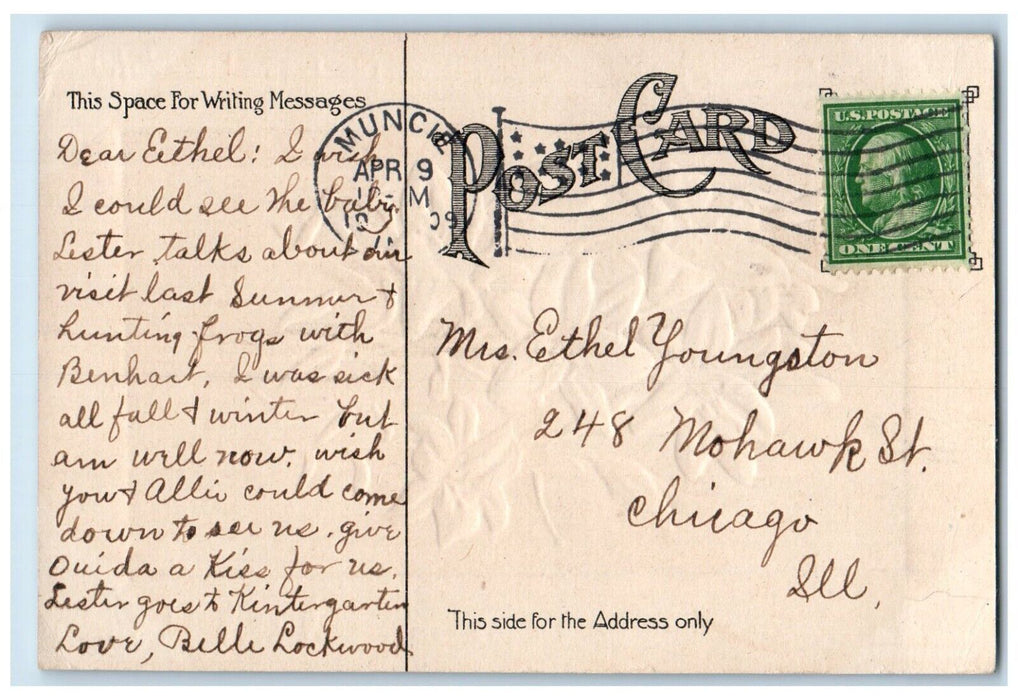 This Space For Writing Messages
Dear Eethel: I wish
I could see the baby
Lester talks about our
visit last Summer &
hunting frogs with
Benhart, I was sick
all fall & winter but
am well now. wish
you & Allie could come
down to see us. give
Ouida a Kiss for us.
Lester goes to Kintergarten
Love, Belle Lockwood
MUNCIE
APR 9
M
09
POST CARD
U.S. POSTAGE
ONE CENT
Mrs. Ethel Youngston
248 Mohawk St.
Chicago
Ill,
This side for the Address only